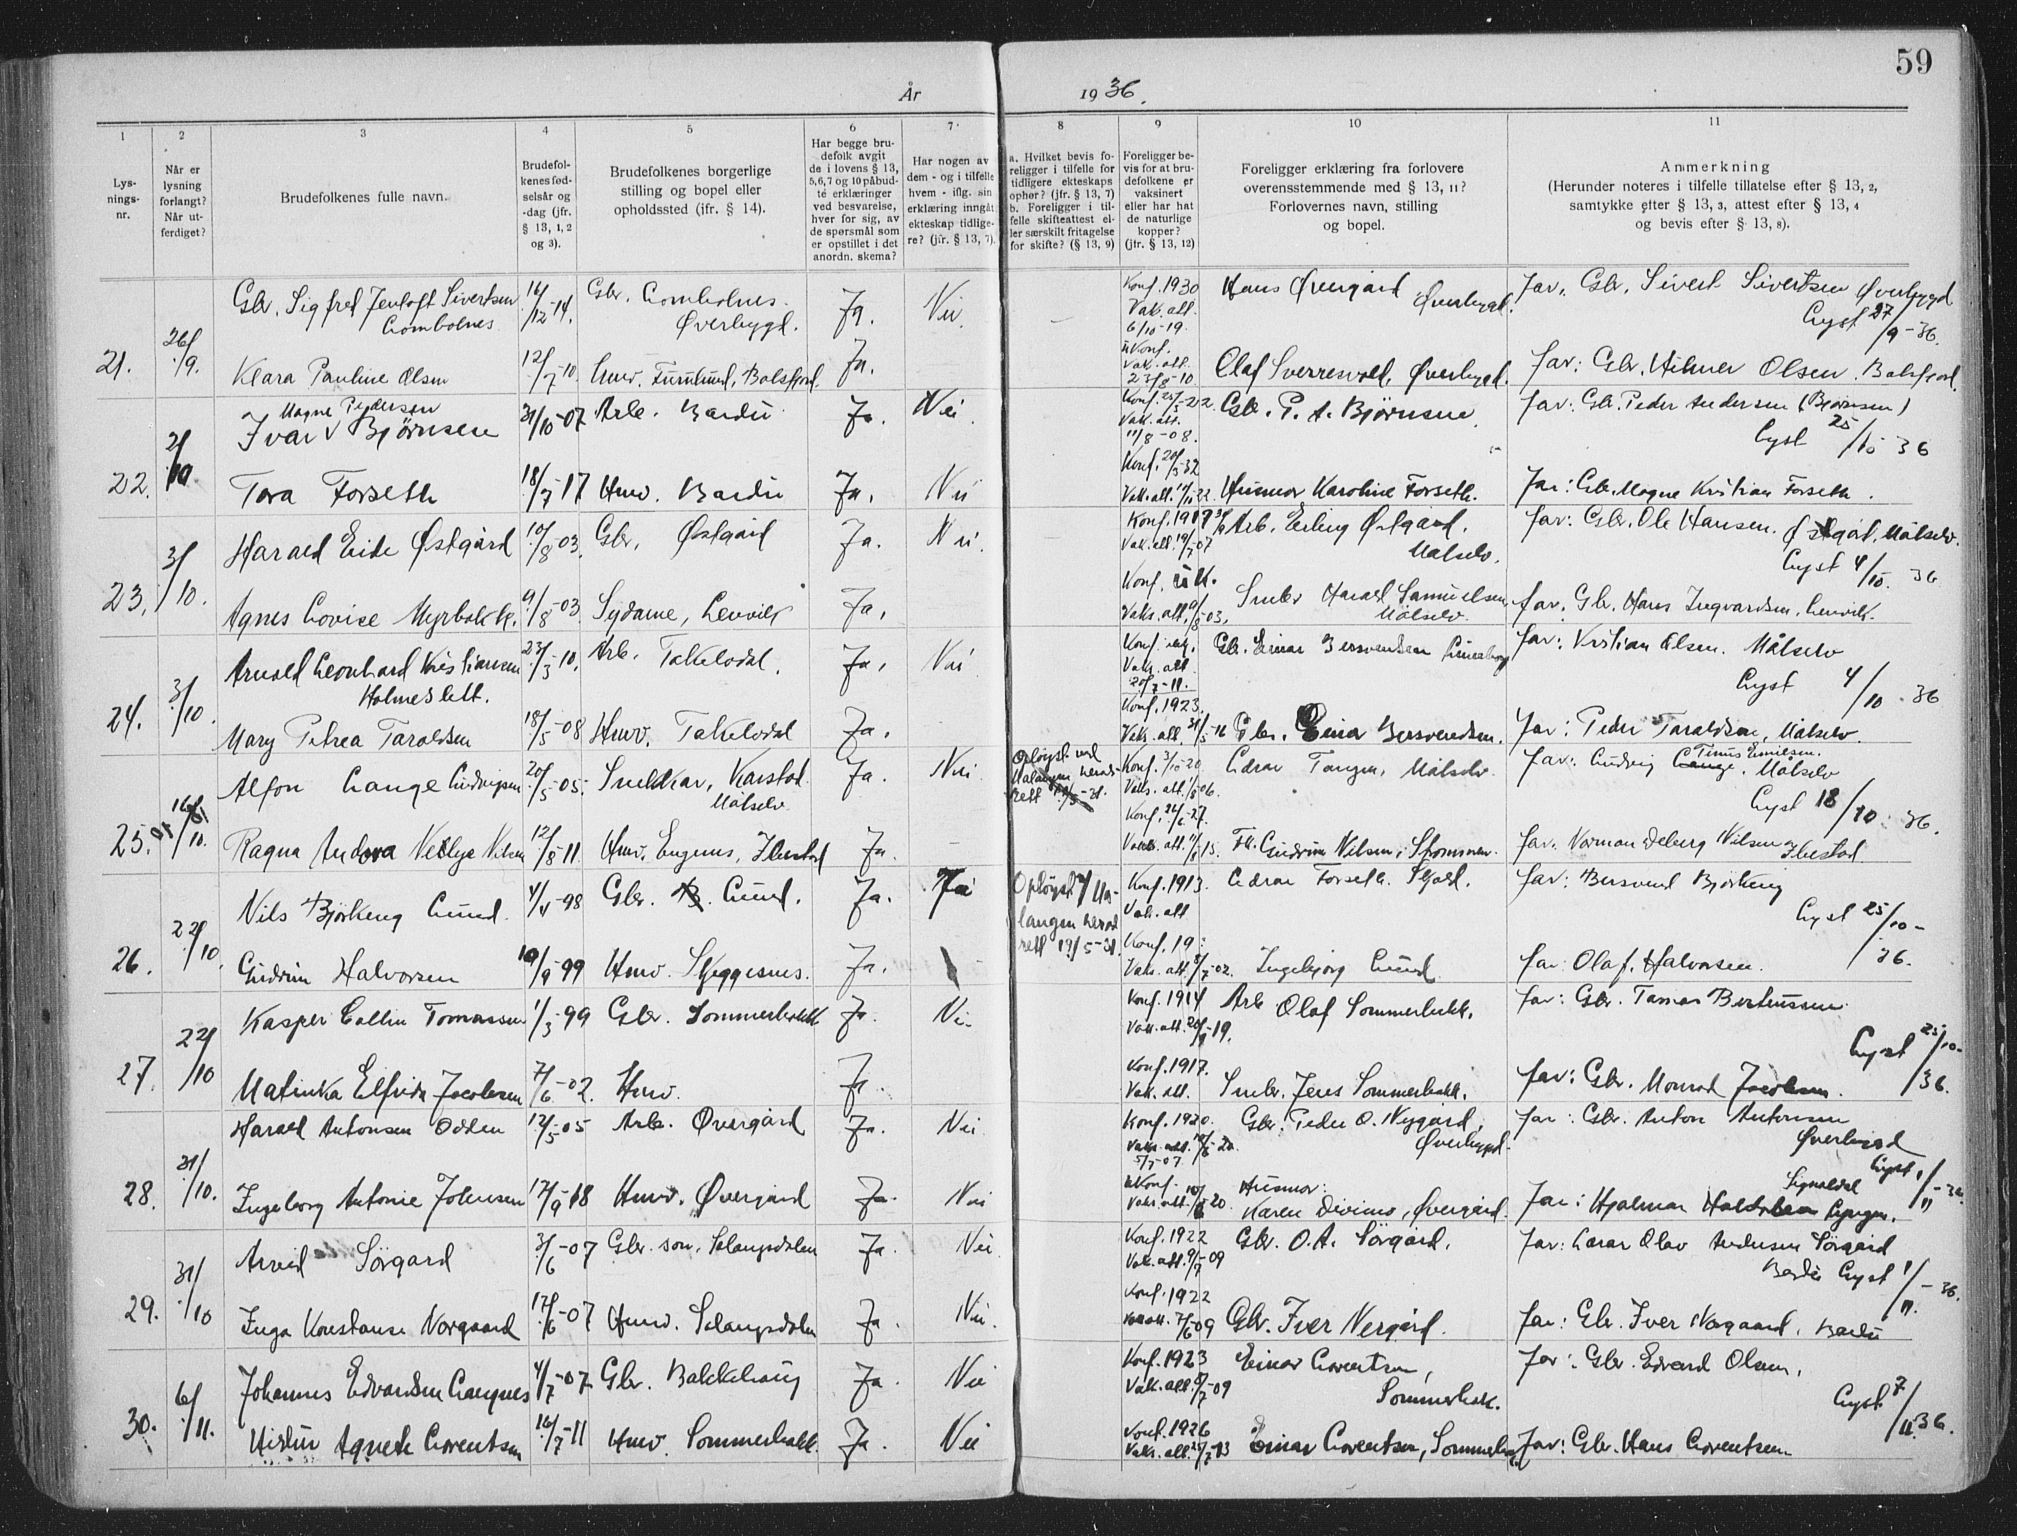 59
År 1936.
1 2 3 4 5 6 7 8 9 10 11
Lys-
nings-
nr.
Når er
lysning
forlangt?
Når ut-
ferdiget?
Brudefolkenes fulle navn.
Brudefol-
kenes fød-
selsår og
-dag (jfr.
§ 13, 1, 2
og 3).
Brudefolkenes borgerlige
stilling og bopel eller
opholdssted (jfr. § 14).
Har begge bru-
defolk avgit
de i lovens § 13,
5, 6, 7 og 10 påbud-
te erklæringer
ved besvarelse,
hver for sig, av
de spørsmål som
er opstillet i det
anordn. skema?
Har nogen av
dem - og i tilfelle
hvem - iflg. sin
erklæring inngåt
ekteskap tidlige-
re? (jfr. § 13, 7).
a. Hvilket bevis fo-
religger i tilfelle for
tidligere ekteskaps
ophør? (jfr. § 13, 7)
b. Foreligger i til-
felle skifteattest el-
ler særskilt fritagelse
for skifte? (§ 13, 9)
Foreligger be-
vis for at bru-
defolkene er
vaksinert
eller har hat
de naturlige
kopper?
(jfr. § 13, 12)
Foreligger erklæring fra forlovere
overensstemmende med § 13, 11?
Forlovernes navn, stilling
og bopel.
Anmerkning
(Herunder noteres i tilfelle tillatelse efter § 13, 2,
samtykke efter § 13, 3, attest efter § 13, 4
og bevis efter § 13, 8).
21. 26/9. Gbr. Sigfred Jentoft Sivertsen 16/12-14. Gbr. Ja. Nei. — Konf. 1930 Hans Øvergård Far: Gbr. Sivert Sivertsen Øverbygd
Øverbygd. Vak. att. Øverbygd. Lyst 27/9-36.
6/10-19.
Klara Pauline Olsen 12/7-10 Husv. Furulund, Balsfjord. Ja. Konf. Olaf Sverresvold, Øverbygd. far: Gbr. Hilmer Olsen. Balsfjord.
Vak. att.
23/8-10
22. 2/10 Magne Pedersen
Ivar Bjørnsen 31/10-07 Arb. Bardu Ja. Nei. Konf. Gbr. P. A. Bjørnsen. far: Gbr. Peder Andersen (Bjørnsen)
Vak. att. Lyst 25/10-36
11/8-08.
Tora Forseth 18/7-17 Husv. Bardu Ja. Nei Konf. Vak. att. Husmor Karoline Forseth. Far: Gbr. Magne Kristian Forseth.
23. 3/10. Harald Eide Østgård 10/8-03. Gbr. Østgård Ja. Nei. Konf. 1917 Arb. Erling Østgård. far: Gbr. Ole Hansen. Østgård, Målselv.
Vak. att. Målselv. Lyst 4/10.36
Agnes Lovise Myrbakk. 9/8-03. Sydame, Lenvik Ja. Konf. Vaks. att. Harald Samuelsen far: Gbr. Hans Ingvardsen, Lenvik.
Målselv.
24. 3/10. Arnold Leonhard Kristiansen 23/3-10. Arb. Takelvdal. Ja. Nei Konf. Gbr. Einar Bersvendsen far: Kristian Olsen. Målselv
Holmeslett. Vak. att. Lyst 4/10-36
Mary Petrea Taraldsen 18/5-08 Husv. Takelvdal Ja. Konf. 1923. Vak. att. Gbr. Einar Bersvendsen. far: Peder Taraldsen, Målselv.
25. 16/10. Alfon Lange Ludvigsen 20/5-05. Snekkar, Karstad Ja. Nei Opløyst ved Konf. 3/10-20 Edvar Tangen, Målselv. far: Ludvig Lange. Målselv
Målselv Malangen herads- Vaks. att. Lyst 18/10-36.
rett
Ragna Andora Nelly Nilsen 12/8-11 Husv. Engenes, Ibestad Ja. Konf. Vaks. att. Gudrun Nilsen, Strommen. far: Norman Nilsen
Ibestad.
26. 22/10. Nils Bjørkeng Lund. 4/4-98 Gbr. Lund. Ja. Ja Opløyst v/ Ma- Konf. 1913. Edvar Forseth. Skjold. far: Bersvend Bjørkeng
langen herad Vak. att Lyst 25/10-
rett 19/5-31. 36.
Gudrun Halvorsen 19/9-99 Husv. Skjeggesnes. Ja. Konf. 19 Vaks. att. Ingebjørg Lund far: Olaf. Halvorsen.
27. 22/10 Kasper Collin Tomassen 1/3-99 Gbr. Sommerbakk Ja. Nei Konf. 1914 Arb Olaf Sommerbakk. far: Gbr. Tomas Bertheussen
Vak. att. Lyst 25/10-36.
Matinka Elfrida Jacobsen 7/6-02. Husv. Ja. Konf. 1917. Vak. att. Jens Sommerbakk. far: Gbr. Monrad Jacobsen.
28. 31/10. Harald Antonsen Odden 12/5-05 Arb. Øvergård Ja. Nei Konf. 1920. Gbr. Peder O. Nygård, far: Gbr. Anton Antonsen
Øverbygd. Øverbygd
5/7-07. Lyst 1/11-36.
Ingeborg Antonie Johnsen 17/9-18 Husv. Øvergård Ja. Nei Konf. Husmor: Signaldal
Vaks. att. Karen Øvergård. Far: Hjalmar Lyngen.
29. 31/10 Arvid Sørgård 3/6-07 Gbr. søn, Salangsdalen Ja. Nei Konf. 1922 Gbr. O. A. Sørgård. Far: Olav Andersen Sørgård
Vak. att. 9/7-09 Bardu Lyst 1/11-36.
Inga Konstanse Norgaard 17/6-07 Husv. Salangsdalen Ja. Nei. Konf. 1922 Gbr. Iver Nergård. far: Gbr. Iver Norgaard. Bardu
7/6-09
30. 6/11. Johannes Edvardsen Langnes 4/7-07 Gbr. Bakkehaug Ja. Nei Konf. 1923 Einar Lorentsen, Far: Gbr. Edvard Olsen.
Vak. att. Sommerbakk. Lyst 7/11.36.
Agnete Lorentsen 16/7-11 Husv. Sommerbakk. Ja. Nei Konf. 1926 Vaks. att. Einar Lorentsen, Far: Gbr. Hans Lorentsen